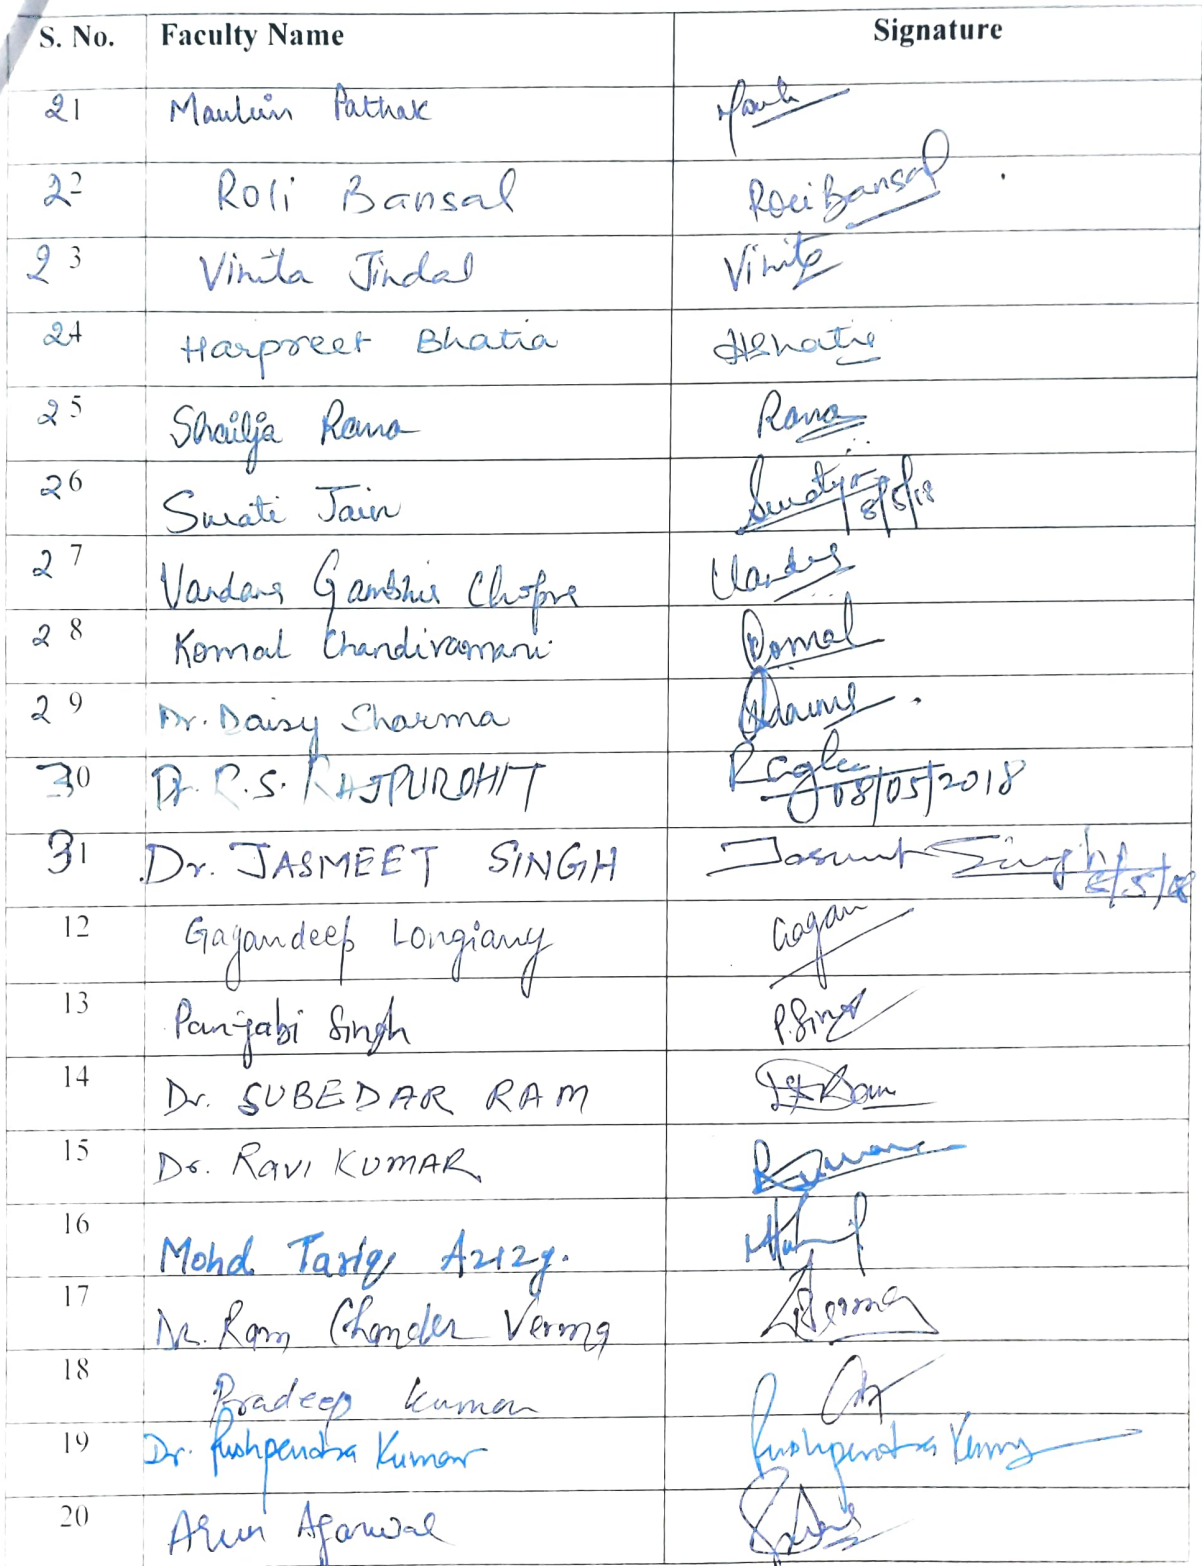 S. No. Faculty Name Signature
21 Maulein Pathak
22 Roli Bansal Roli Bansal
23 Vinita Jindal Vinita
24 Harpreet Bhatia HBhatia
25 Shailja Rana Rana
26 Swati Jain Swati 8/5/18
27 Vandana Gambhir Chopra Vandana
28 Komal Chandiramani Komal
29 Dr. Daisy Sharma
30 Dr. R.S. RAJPUROHIT 08/05/2018
31 Dr. JASMEET SINGH Jasmeet Singh
12 Gagandeep Longiany Gagan
13 Panjabi Singh P.Singh
14 Dr. SUBEDAR RAM
15 Dr. RAVI KUMAR
16 Mohd Tariq Azizy.
17 Dr. Ram Chander Verma
18 Pradeep Kumar
19 Dr. Pushpendra Kumar Pushpendra Kumar
20 Arun Agarwal